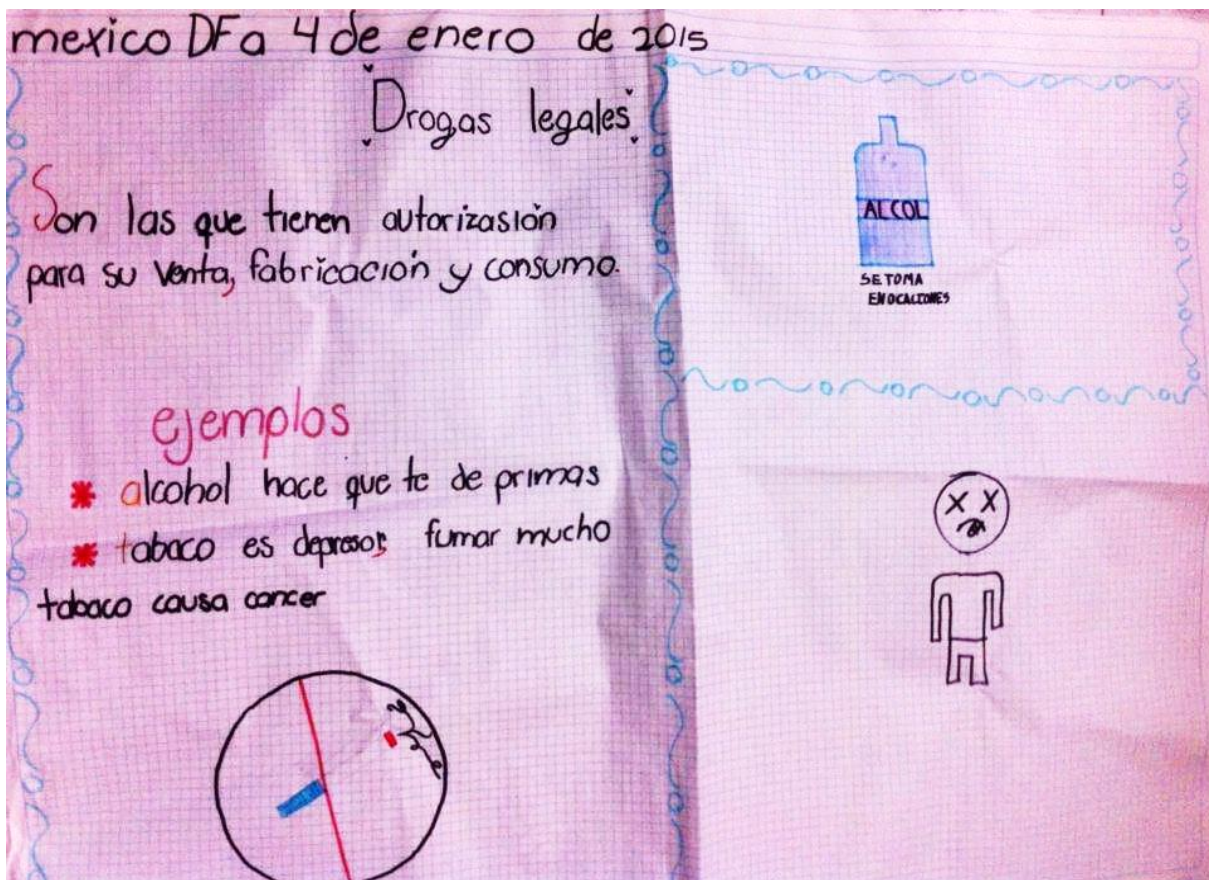 mexico DF a 4 de enero de 2015
Drogas legales
Son las que tienen autorizasión
para su venta, fabricación y consumo.
ejemplos
alcohol hace que te de primas
tabaco es depresor, fumar mucho
tabaco causa cancer
ALCOL
SE TOMA
EN OCACIONES